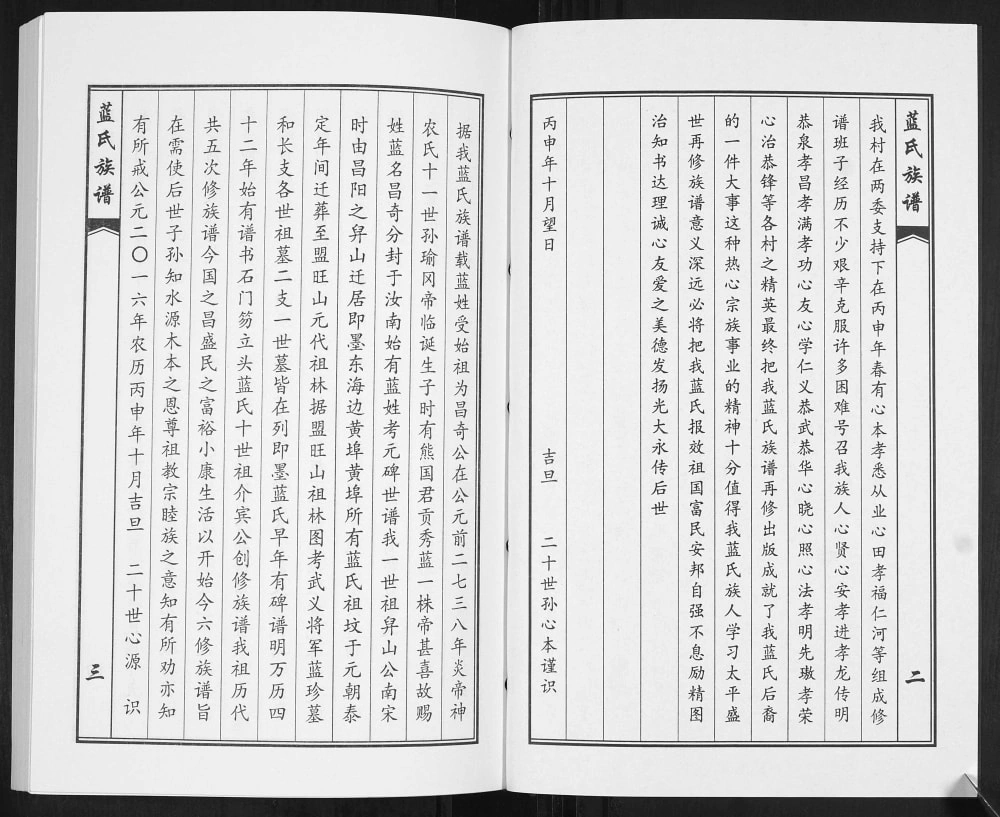 蓝氏族谱
二
我村在两委支持下在丙申年春有心本孝悉从业心田孝福仁河等组成修
谱班子经历不少艰辛克服许多困难号召我族人心贤心安孝进孝龙传明
恭泉孝昌孝满孝功心友心学仁义恭武恭华心晓心照心法孝明先璈孝荣
心治恭锋等各村之精英最终把我蓝氏族谱再修出版成就了我蓝氏后裔
的一件大事这种热心宗族事业的精神十分值得我蓝氏族人学习太平盛
世再修族谱意义深远必将把我蓝氏报效祖国富民安邦自强不息励精图
治知书达理诚心友爱之美德发扬光大永传后世
丙申年十月望日 吉旦 二十世孙心本谨识
据我蓝氏族谱载蓝姓受始祖为昌奇公在公元前二七三八年炎帝神
农氏十一世孙瑜冈帝临诞生子时有熊国君贡秀蓝一株帝甚喜故赐
姓蓝名昌奇分封于汝南始有蓝姓考元碑世谱我一世祖舁山公南宋
时由昌阳之舁山迁居即墨东海边黄埠黄埠所有蓝氏祖坟于元朝泰
定年间迁葬至盟旺山元代祖林据盟旺山祖林图考武义将军蓝珍墓
和长支各世祖墓二支一世墓皆在列即墨蓝氏早年有碑谱明万历四
十二年始有谱书石门笏立头蓝氏十世祖介宾公创修族谱我祖历代
共五次修族谱今国之昌盛民之富裕小康生活以开始今六修族谱旨
在需使后世子孙知水源木本之恩尊祖教宗睦族之意知有所劝亦知
有所戒公元二〇一六年农历丙申年十月吉旦 二十世心源 识
蓝氏族谱
三